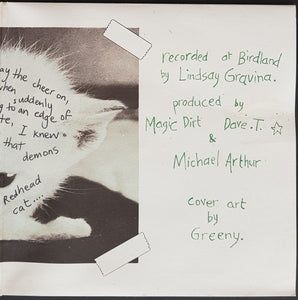 ay the cheer on,
when
suddenly
g to an edge of
te, I knew
that
demons
Redhead
cat....
recorded at Birdland
by Lindsay Gravina.
produced by
Magic Dirt Dave.T. ☆
&
Michael Arthur
cover art
by
Greeny.